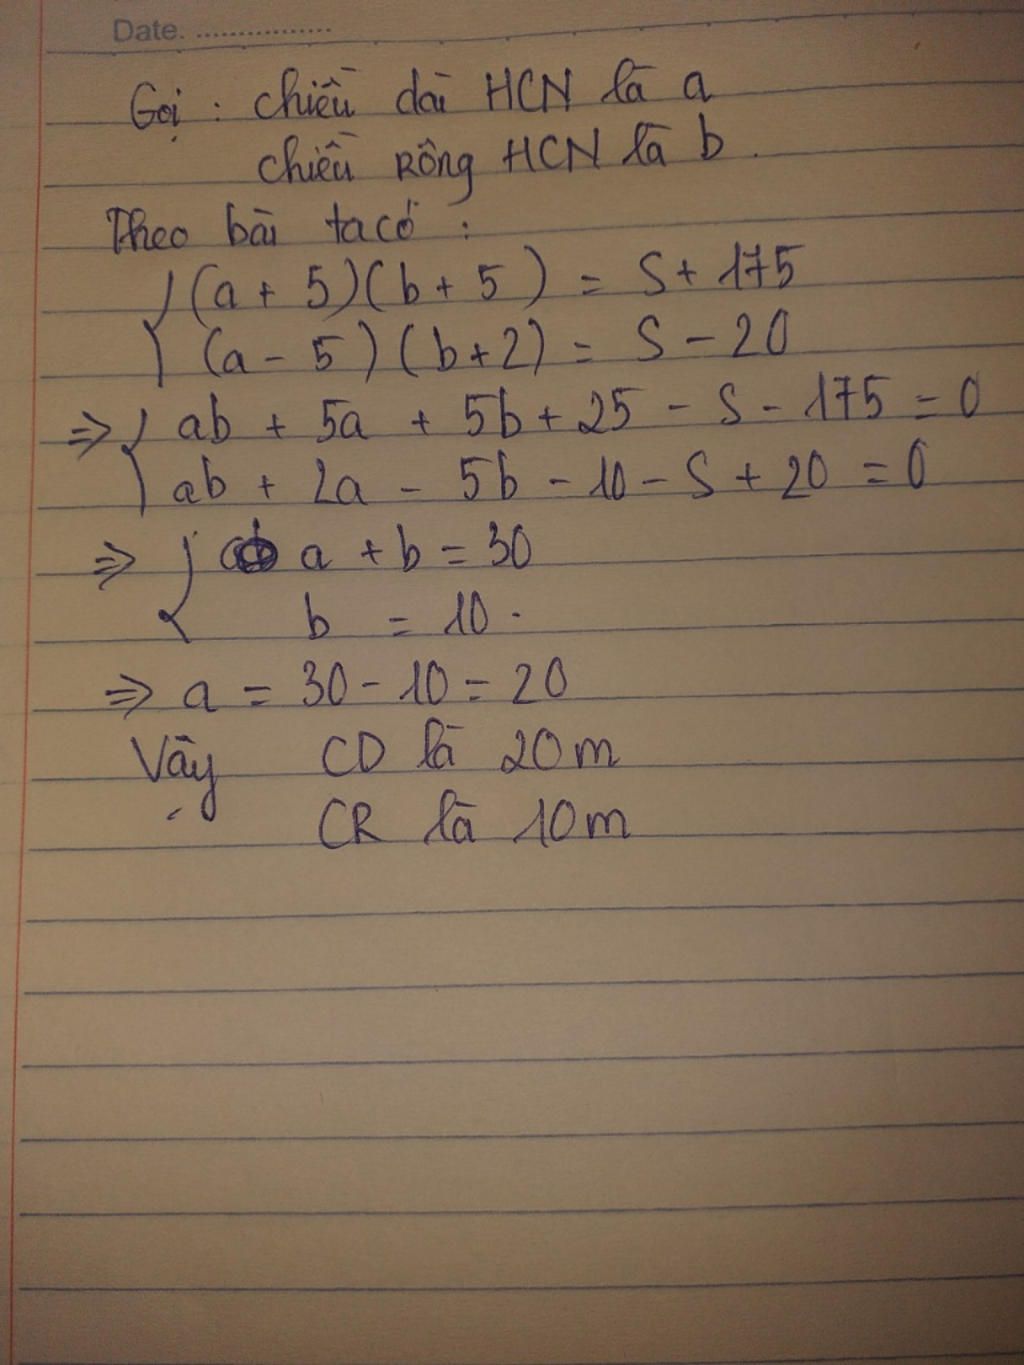 Date. .................
Gọi : chiều dài HCN là a
chiều Rộng HCN là b.
Theo bài ta có :
{ (a + 5)(b + 5) = S + 175
(a - 5) (b+2) = S - 20
=> { ab + 5a + 5b + 25 - S - 175 = 0
ab + 2a - 5b - 10 - S + 20 = 0
=> { a + b = 30
b = 10.
=> a = 30 - 10 = 20
Vậy CD là 20m
CR là 10m